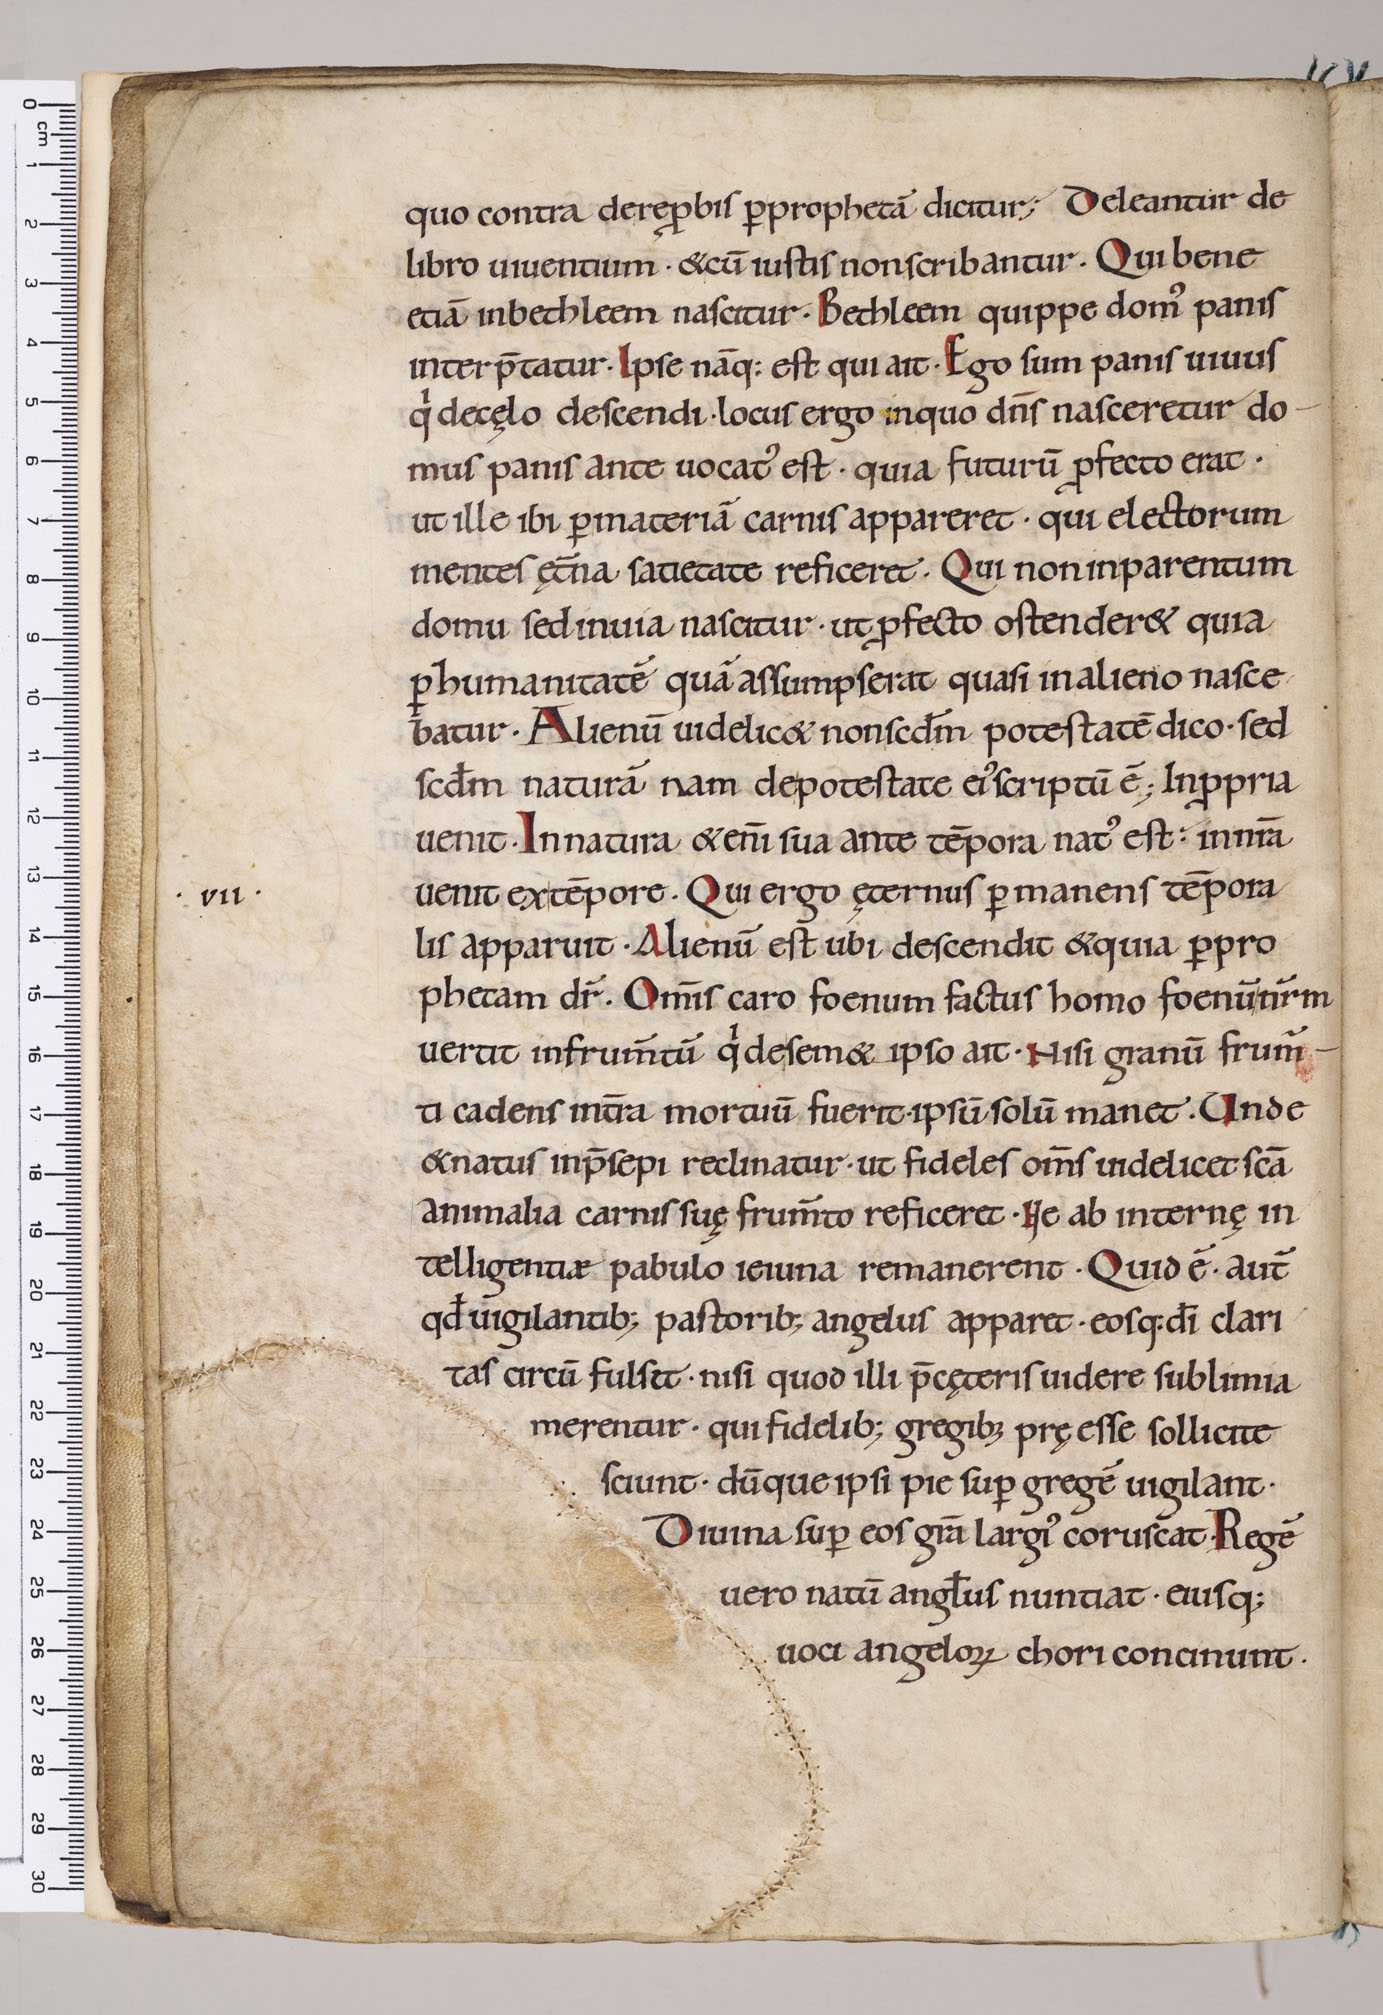 quo contra dereꝓbis ꝑprophetā dicitur; Deleantur de
libro uiuentium · &cū iustis nonscribantur. Qui bene
etiā inbethleem nascitur. Bethleem quippe domꝰ panis
interp̄tatur. Ipse nāq: est qui ait. Ego sum panis uiuus
qͥ decęlo descendi · locus ergo inquo dn̄s nasceretur do-
mus panis ante uocatꝰ est · quia futurū ꝓfecto erat ·
ut ille ibi ꝑmateriā carnis appareret · qui electorum
mentes ęt̄na satietate reficeret. Qui noninparentum
domu sedinuia nascitur · ut ꝓfecto ostender& quia
ꝑhumanitatē quā assumpserat quasi inalieno nasce
batur. Alienū uidelic& nonscd̄m potestatē dico · sed
scd̄m naturā nam depotestate eiꝰ scriptū ē; Inꝓpria
uenit. Innatura &en̄i sua ante tēpora natꝰ est: innr̄a
uenit extēpore. Qui ergo ęternus ꝑmanens tēpora
· VII ·
lis apparuit. Alienū est ubi descendit &quia ꝑpro
phetam dr̄. Om̄is caro foenum factus homo foenūnr̄m
uertit infrum̄tū qͥ desem& ipso ait. Nisi granū frum̄-
ti cadens int̄ra mortuū fuerit · ipsū solū manet. Unde
&natus inp̄sepi reclinatur · ut fideles om̄s uidelicet scā
animalia carnis suę frum̄to reficeret. Ne ab internę in
telligentiæ pabulo ieiuna remanerent. Quid ē · aut̄
qd̄ uigilantib; pastorib; angelus apparet · eosq: dī clari
tas circū fulsit · nisi quod illi p̄cęteris uidere sublimia
merentur · qui fidelib; gregib; pręesse sollicite
sciunt · dūque ipsi pie suꝑ gregē uigilant ·
Diuina suꝑ eos grā largiꝰ coruscat. Regē
uero natū angłus nuntiat · eiusq;
uoci angeloꝝ chori concinunt.